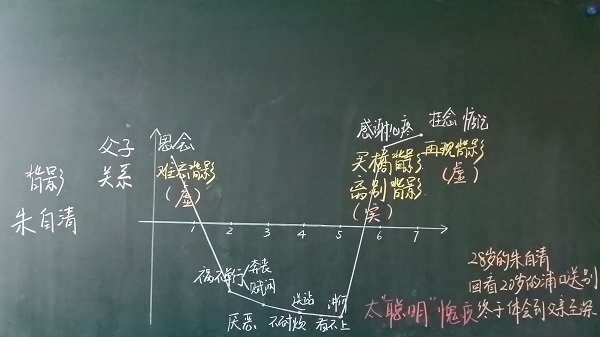 背影
朱自清
父子
关系
思念
难忘背影
（虚）
感谢心疼
挂念 惦记
买橘背影
离别背影
（实）
再现背影
（虚）
1 2 3 4 5 6 7
祸不单行/奔丧
厌恶
不耐烦
看不上
28岁的朱自清
回看20岁的浦口送别
太“聪明”愧疚 终于体会到父亲